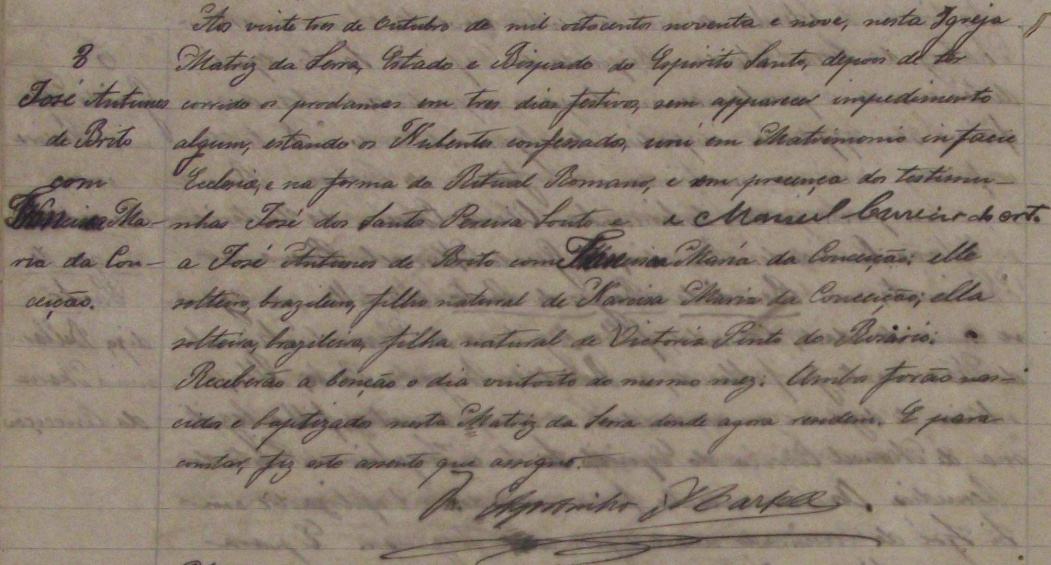 Aos vinte tres de Outubro de mil oitocentos noventa e nove, nesta Igreja
8
Matriz da Serra, Estado e Bispado do Espirito Santo, depois de ter
José Antunes
corrido os proclamas em tres dias festivos, sem apparecer impedimento
de Brito
algum, estando os Nubentes confessados, uni em Matrimonio in facie
com
Ecclesia, e na forma do Ritual Romano, e em presença das testemu-
Francisca Ma-
nhas José dos Santo Pereira Souto e a Manuel
ria da Con-
a José Antunes de Brito com Francisca Maria da Conceição; elle
ceição.
solteiro, brazileiro, filho natural de Narcisa Maria da Conceição; ella
solteira, brazileira, filha natural de Victoria Pinto do Rosário.
Receberão a benção o dia vintoito do mesmo mez. Ambos forão nas-
cidos e baptizados nesta Matriz da Serra donde agora residem. E para
constar, fiz este assento que assigno.